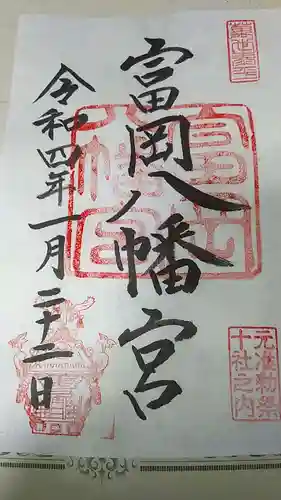 富岡八幡宮
令和四年一月二十二日
富岡
八幡宮
元准勅祭
十社之内